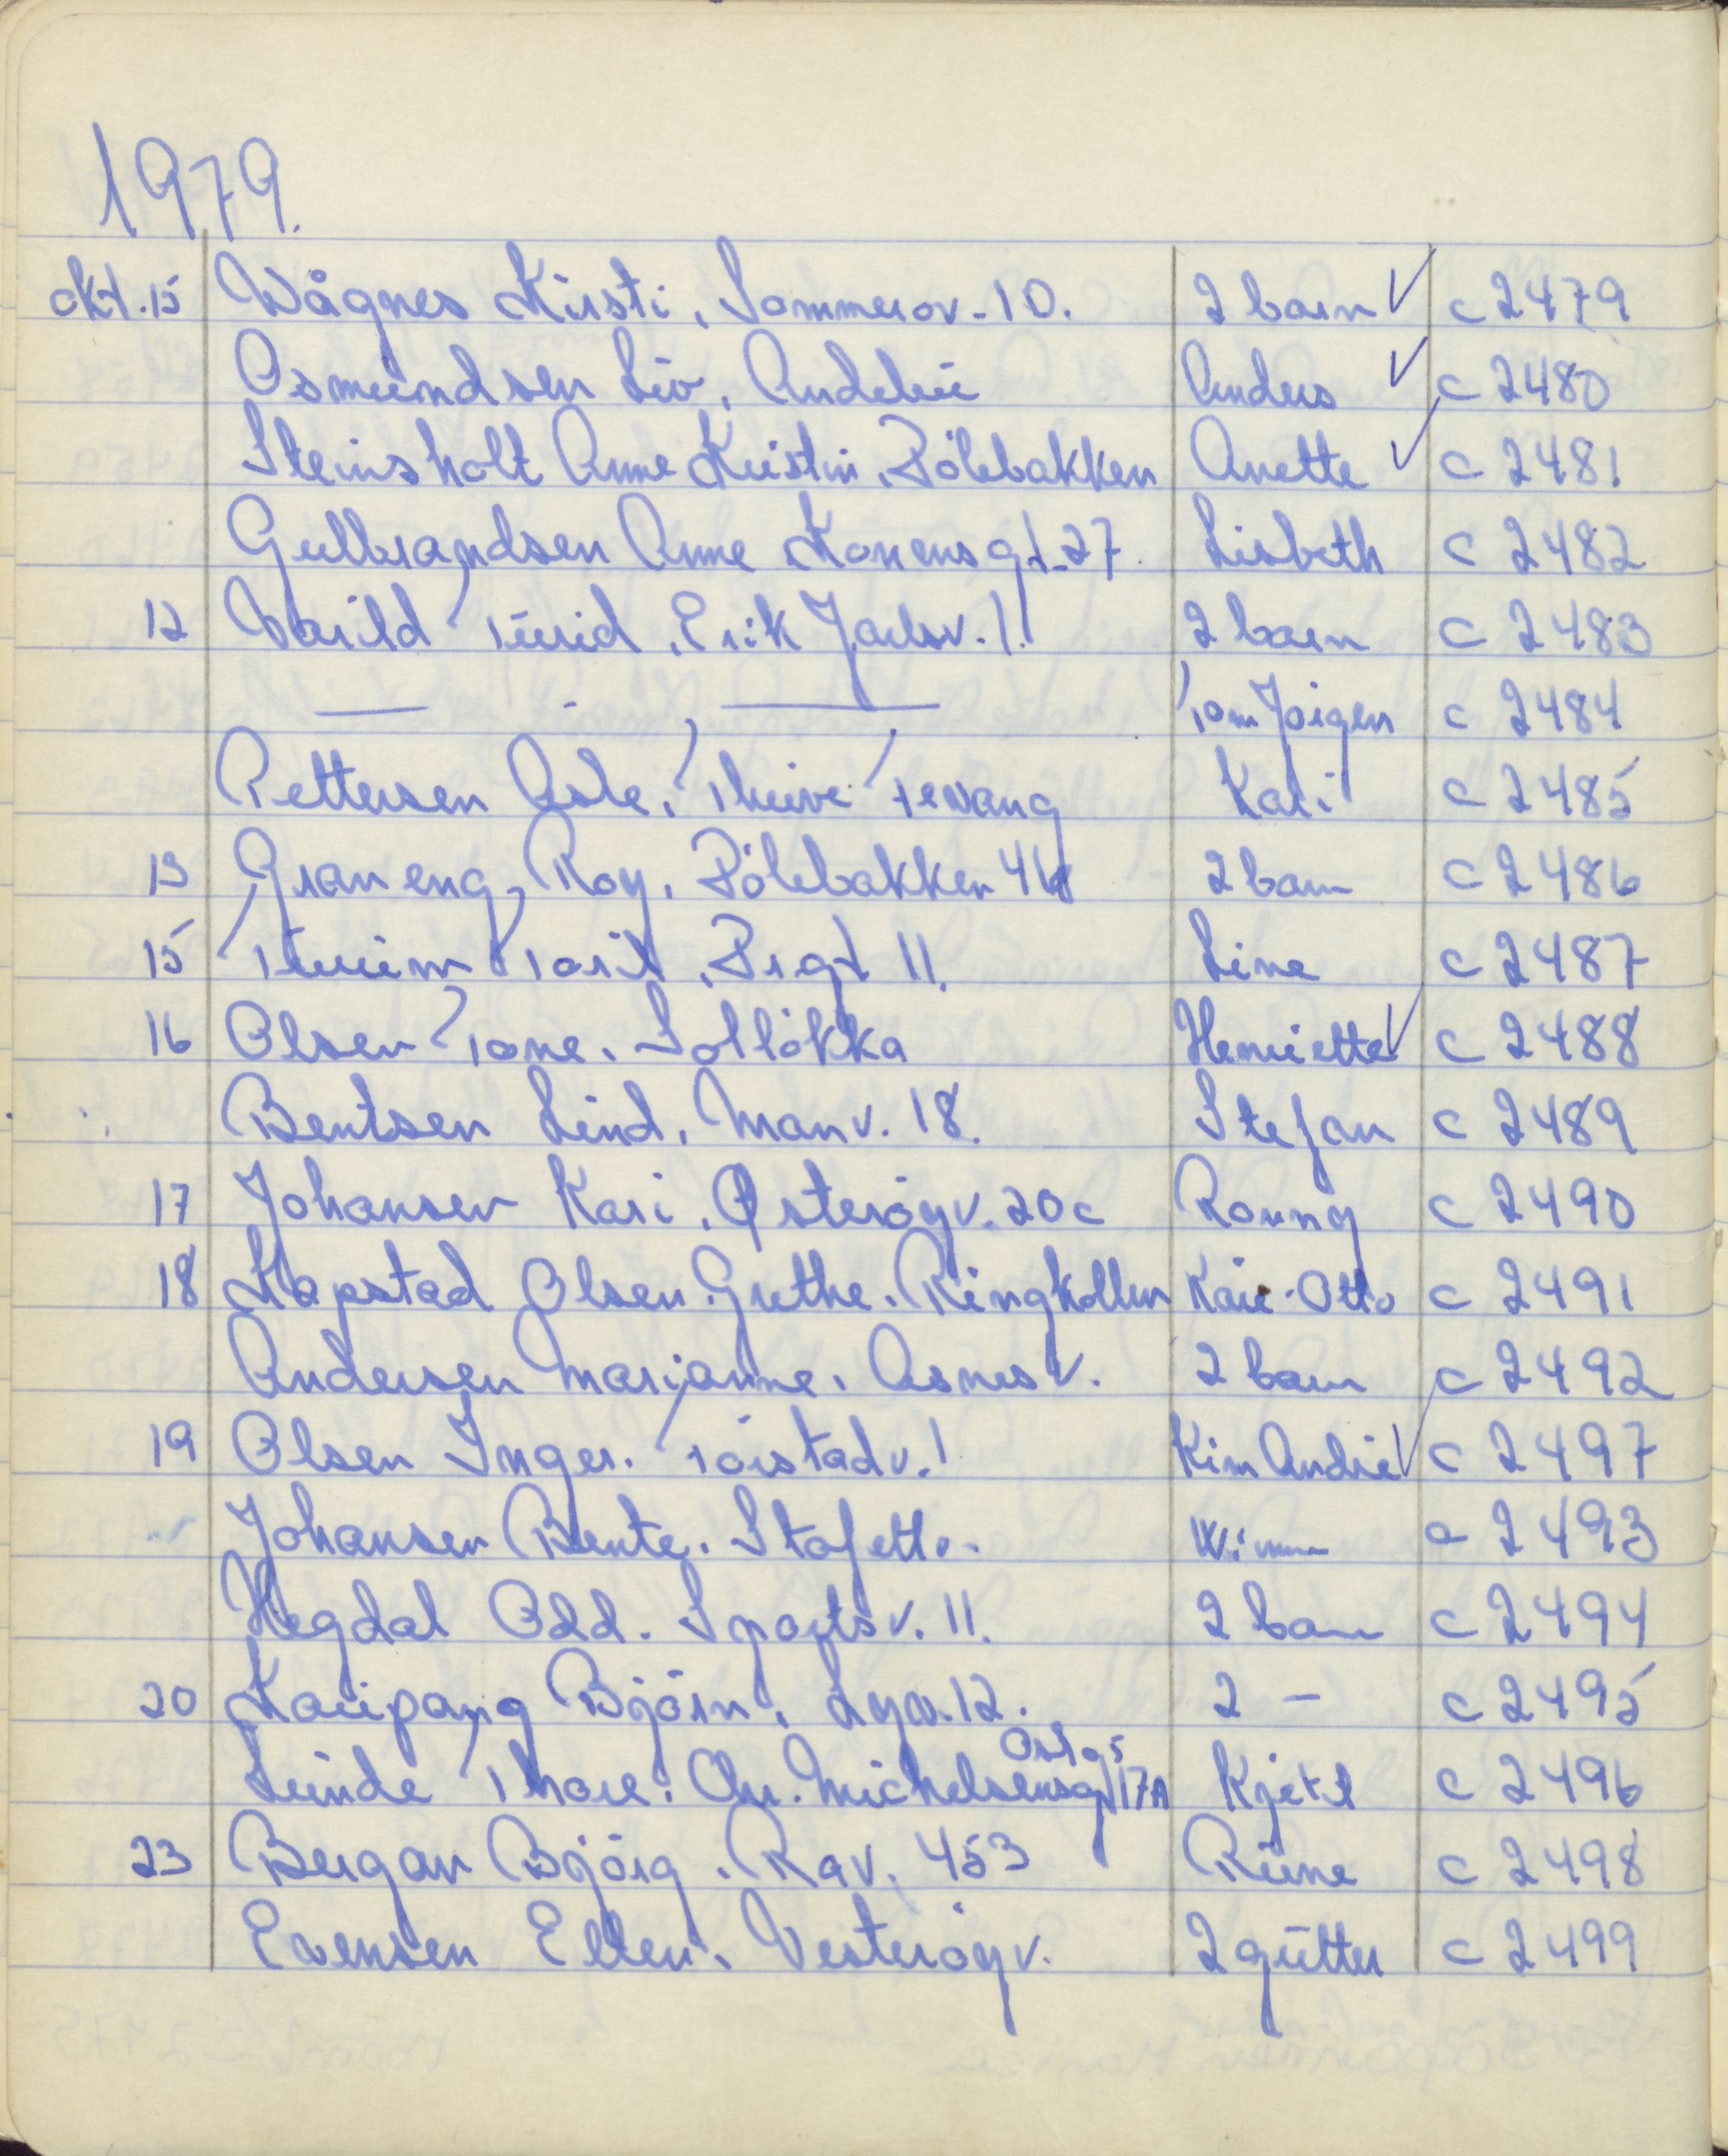 1979.
okt. 15 Wågnes Kirsti, Sommerov. 10. 2 barn ✓ c 2479
Osmundsen Liv, Andebu Anders ✓ c 2480
Steinsholt Anne Kristin, Pölebakken Anette ✓ c 2481
Gulbrandsen Anne Konensgt. 27. Lisbeth c 2482
12 Varild Turid, Erik Jarlsv. 1. 2 barn c 2483
— - — Tom Jörgen c 2484
Pettersen Asle, Thurve Tevang Kari c 2485
13 Graneng, Roy, Pölebakken 2 barn c 2486
15 Turum Toril, Prgt 11. Line c 2487
16 Olsen Tone. Sollökka Henriette ✓ c 2488
Bentsen Lind, Manv. 18. Stefan c 2489
17 Johansen Kari, Østeröyv. 20c Ronny c 2490
18 Kopstad Olsen. Grethe. Ringkollen Kåre-Otto c 2491
Andersen Marianne, Asnesv. 2 barn c 2492
19 Olsen Inger. Torstadv. 1 Kim André ✓ c 2497
Johansen Bente. Stafettv. c 2493
Hegdal Odd. Sportsv. 11. 2 barn c 2494
20 Kaupang Björn, Lyv. 12. 2 — c 2495
Lunde Thore. Chr. Michelsensgt 17A Kjetil c 2496
23 Bergan Björg. Rav. 453 Rune c 2498
Evensen Ellen, Vesteröyv. 2 gutter c 2499